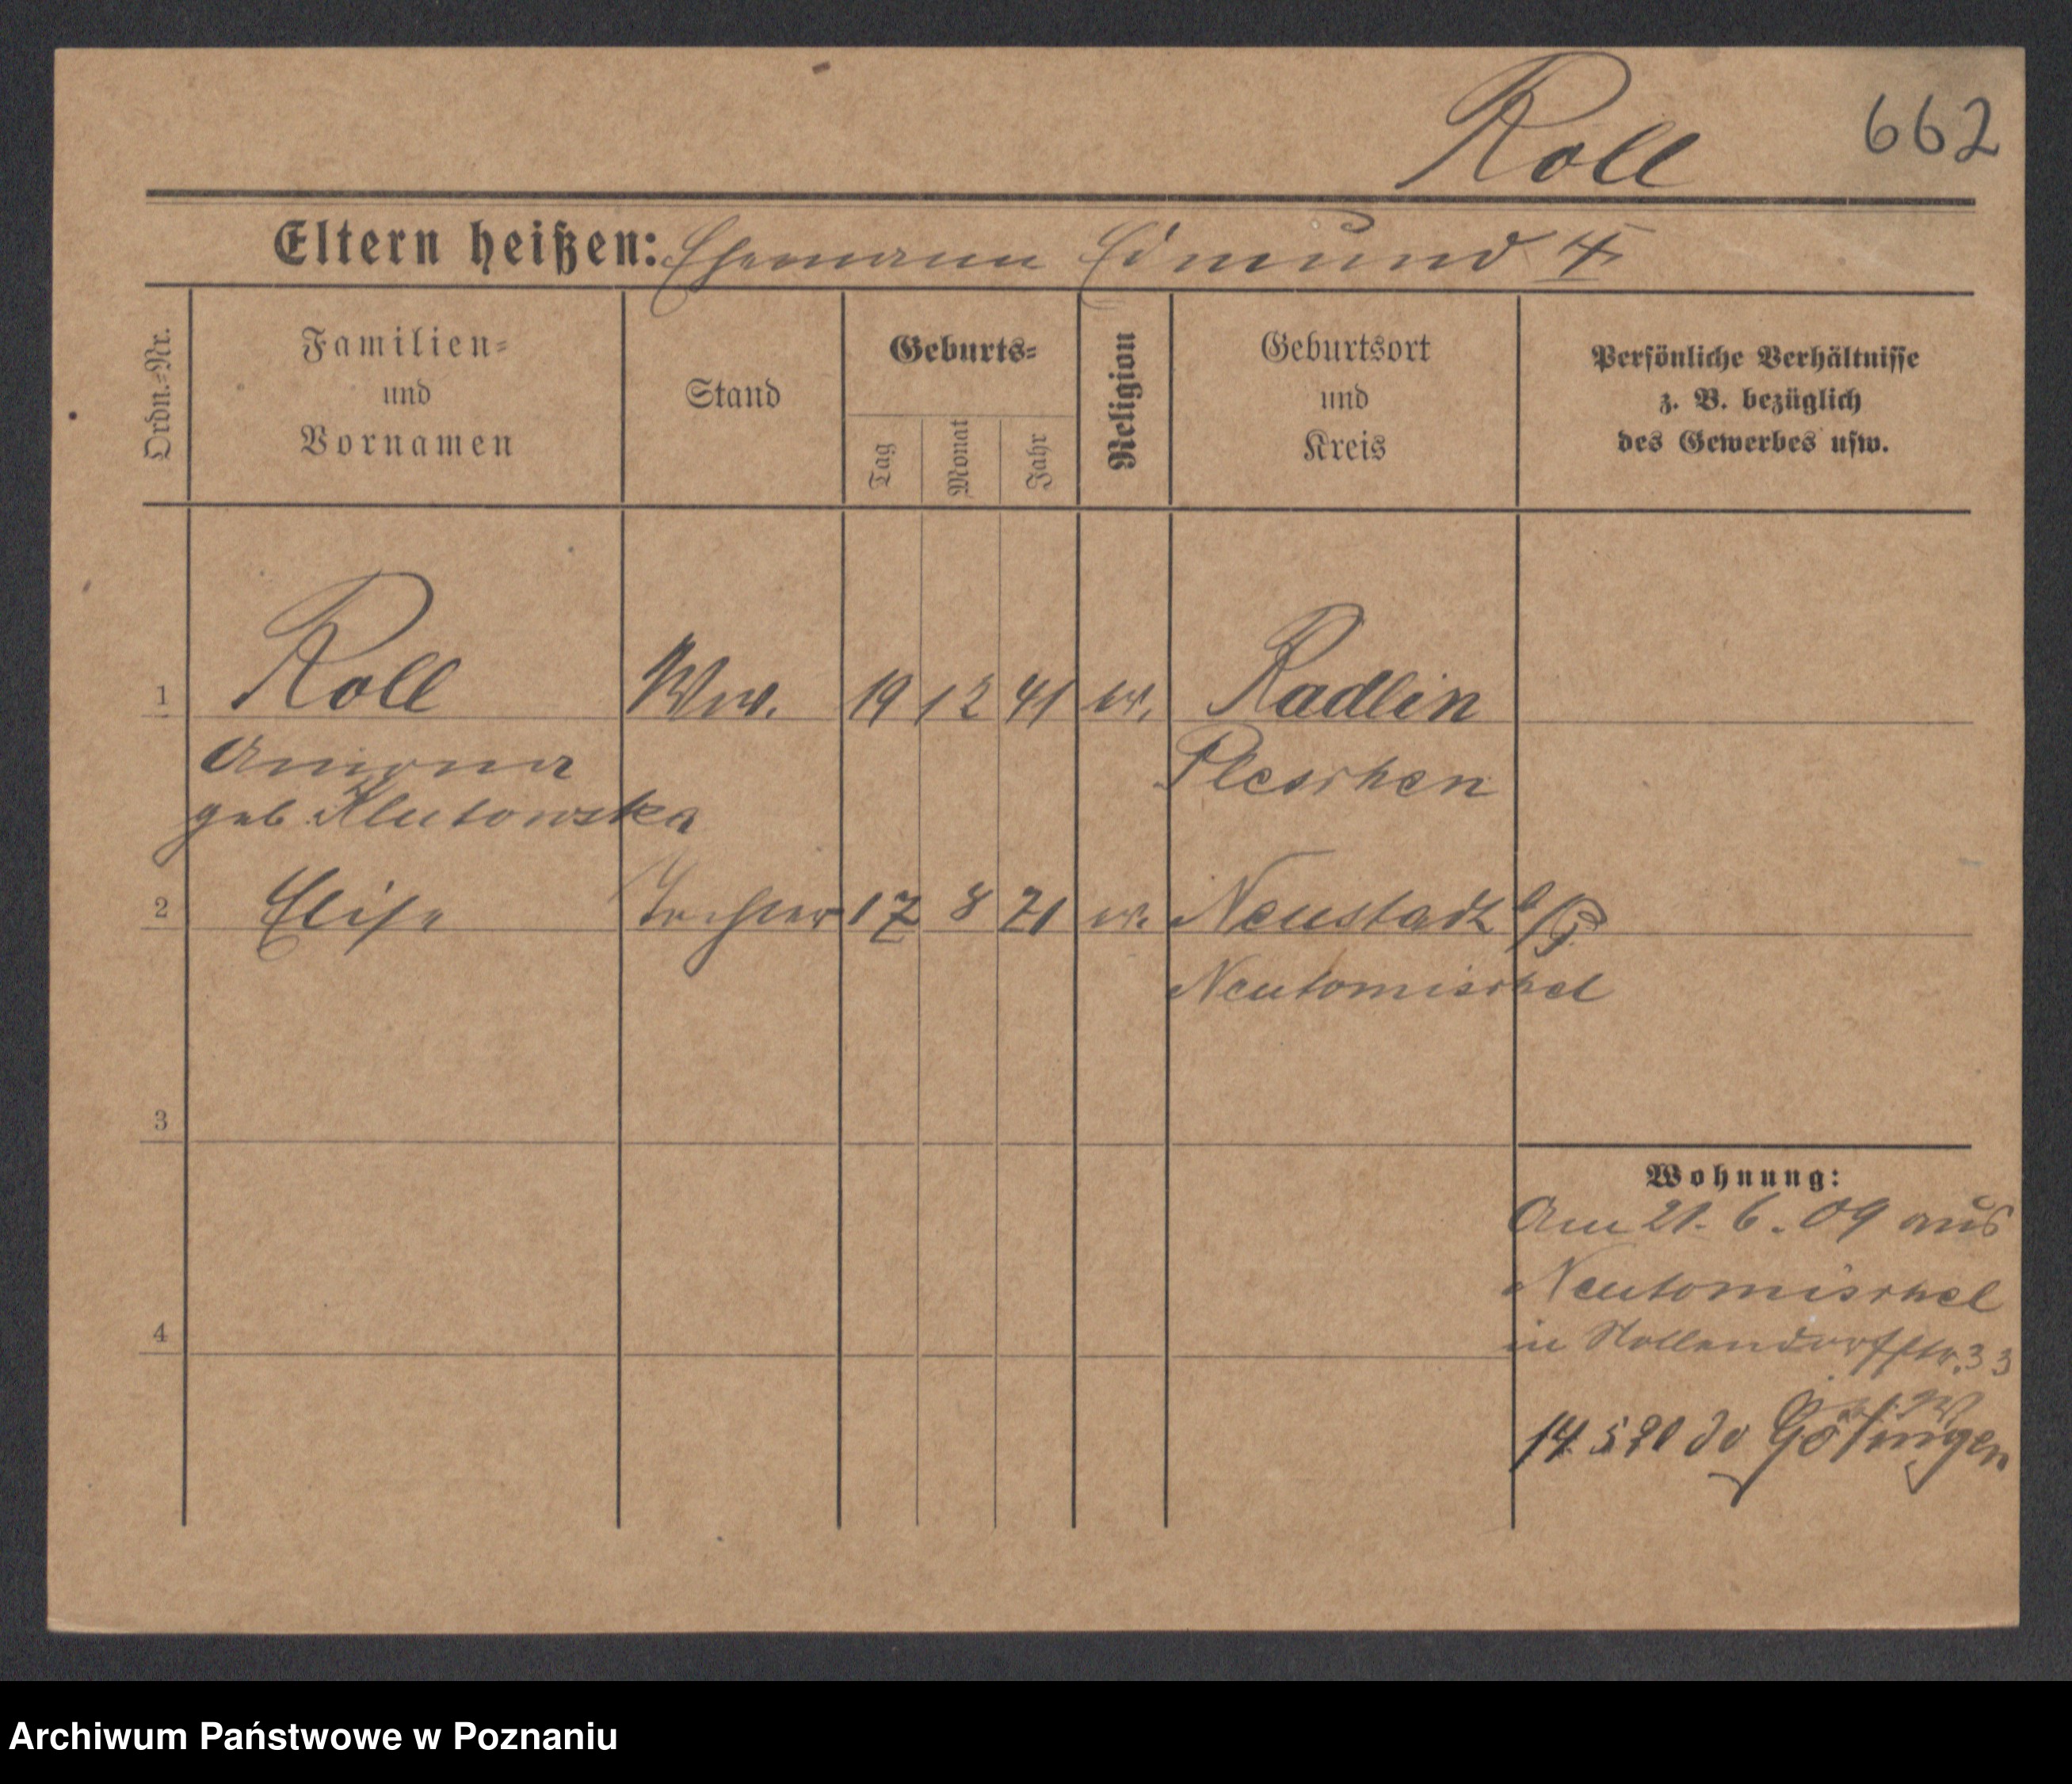 Roll
662
Eltern heißen: Ehemann Edmund
Ordn.-Nr.
Familien-
und
Vornamen
Stand
Geburts-
Tag
Monat
Jahr
Religion
Geburtsort
und
Kreis
Persönliche Verhältnisse
z. B. bezüglich
des Gewerbes usw.
1 Roll Ww. 19 12 41 ev. Radlin
Pleschen
geb Klutowska
2 Elise Tochter 17 8 71 ev. Neustadt b/P.
Neutomischel
3
Wohnung:
Am 21. 6. 09 aus
Neutomischel
4
in Nollendorffstr. 33
14 5 20
Archiwum Państwowe w Poznaniu